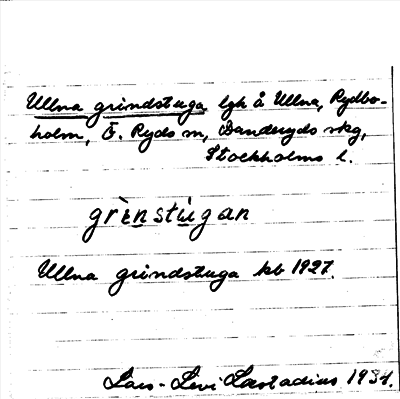 Ullna grindstuga lgh å Ullna, Rydbo-
holm, Ö. Ryds sn, Danderyds skg,
Stockholms l.
grìnstùgan
Ullna grindstuga kb 1927.
Lars-Levi Læstadius 1934.